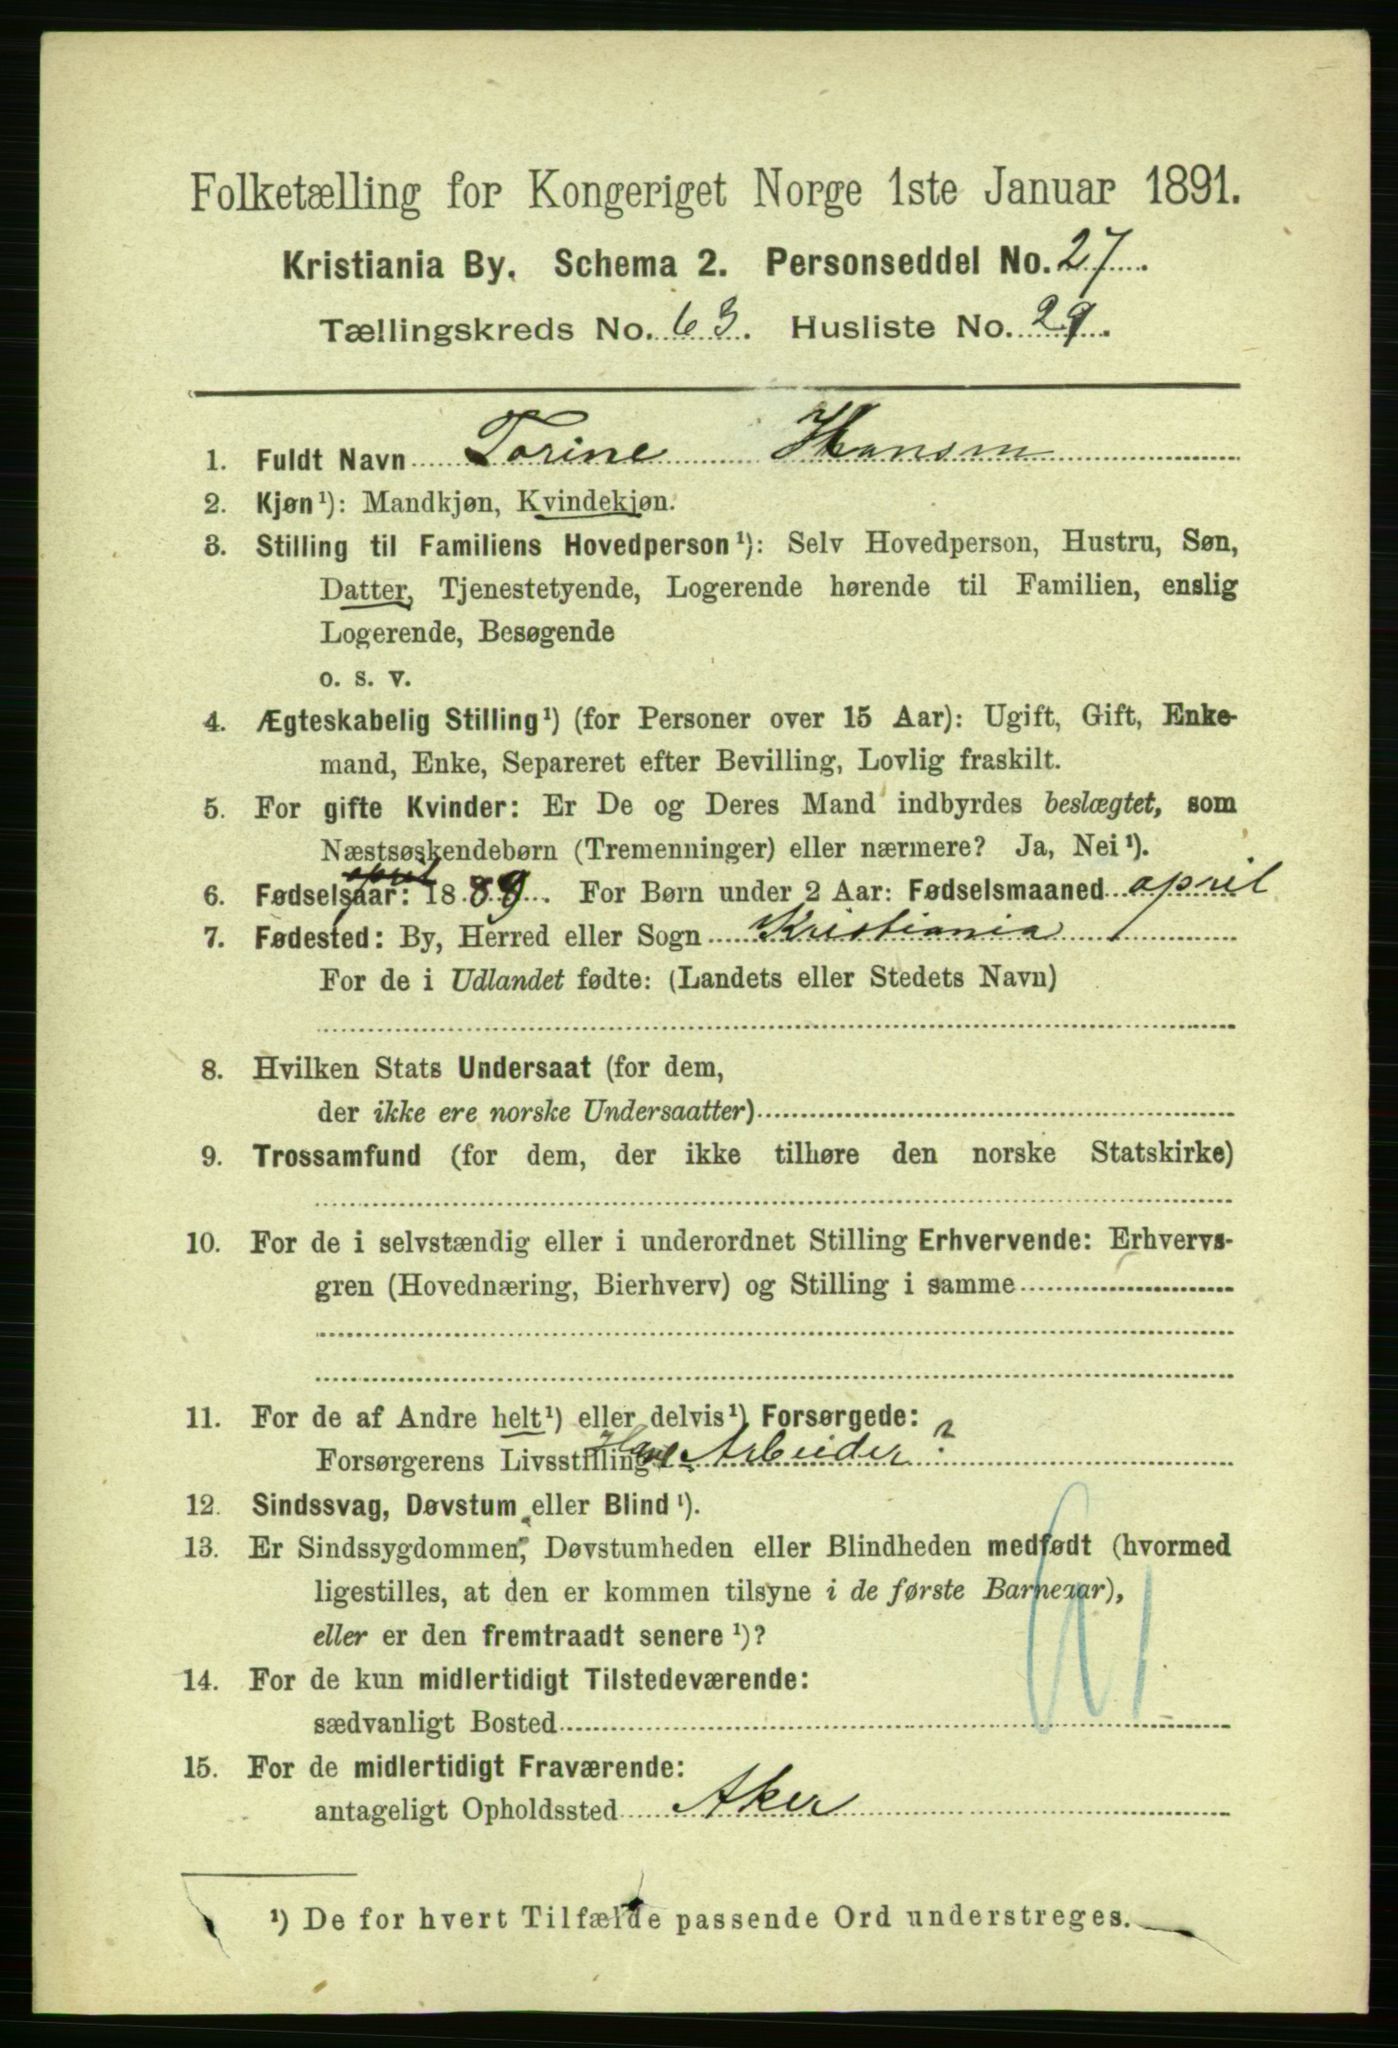 Folketælling for Kongeriget Norge 1ste Januar 1891.
Kristiania By. Schema 2. Personseddel No. 27.
Tællingskreds No. 63. Husliste No. 29.
1. Fuldt Navn Torine Hansen
2. Kjøn¹): Mandkjøn, Kvindekjøn.
3. Stilling til Familiens Hovedperson¹): Selv Hovedperson, Hustru, Søn,
Datter, Tjenestetyende, Logerende hørende til Familien, enslig
Logerende, Besøgende
o. s. v.
4. Ægteskabelig Stilling¹) (for Personer over 15 Aar): Ugift, Gift, Enke-
mand, Enke, Separeret efter Bevilling, Lovlig fraskilt.
5. For gifte Kvinder: Er De og Deres Mand indbyrdes beslægtet, som
Næstsøskendebørn (Tremenninger) eller nærmere? Ja, Nei¹).
april
6. Fødselsaar: 1889. For Børn under 2 Aar: Fødselsmaaned april
7. Fødested: By, Herred eller Sogn Kristiania
For de i Udlandet fødte: (Landets eller Stedets Navn)
8. Hvilken Stats Undersaat (for dem,
der ikke ere norske Undersaatter)
9. Trossamfund (for dem, der ikke tilhøre den norske Statskirke)
10. For de i selvstændig eller i underordnet Stilling Erhvervende: Erhvervs-
gren (Hovednæring, Bierhverv) og Stilling i samme
11. For de af Andre helt¹) eller delvis¹) Forsørgede:
Forsørgerens Livsstilling Arbeider ?
12. Sindssvag, Døvstum eller Blind¹).
13. Er Sindssygdommen, Døvstumheden eller Blindheden medfødt (hvormed
ligestilles, at den er kommen tilsyne i de første Barneaar),
eller er den fremtraadt senere¹)?
14. For de kun midlertidigt Tilstedeværende:
sædvanligt Bosted
15. For de midlertidigt Fraværende:
antageligt Opholdssted Aker
¹) De for hvert Tilfælde passende Ord understreges.